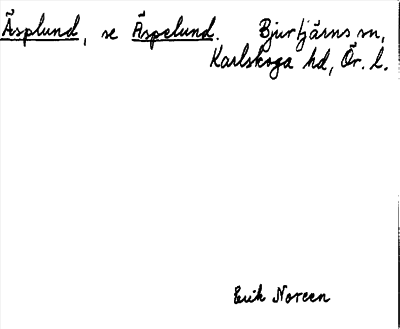 Äsplund, se Äspelund. Bjurtjärns sn,
Karlskoga hd, Ör. l.
Erik Noreen